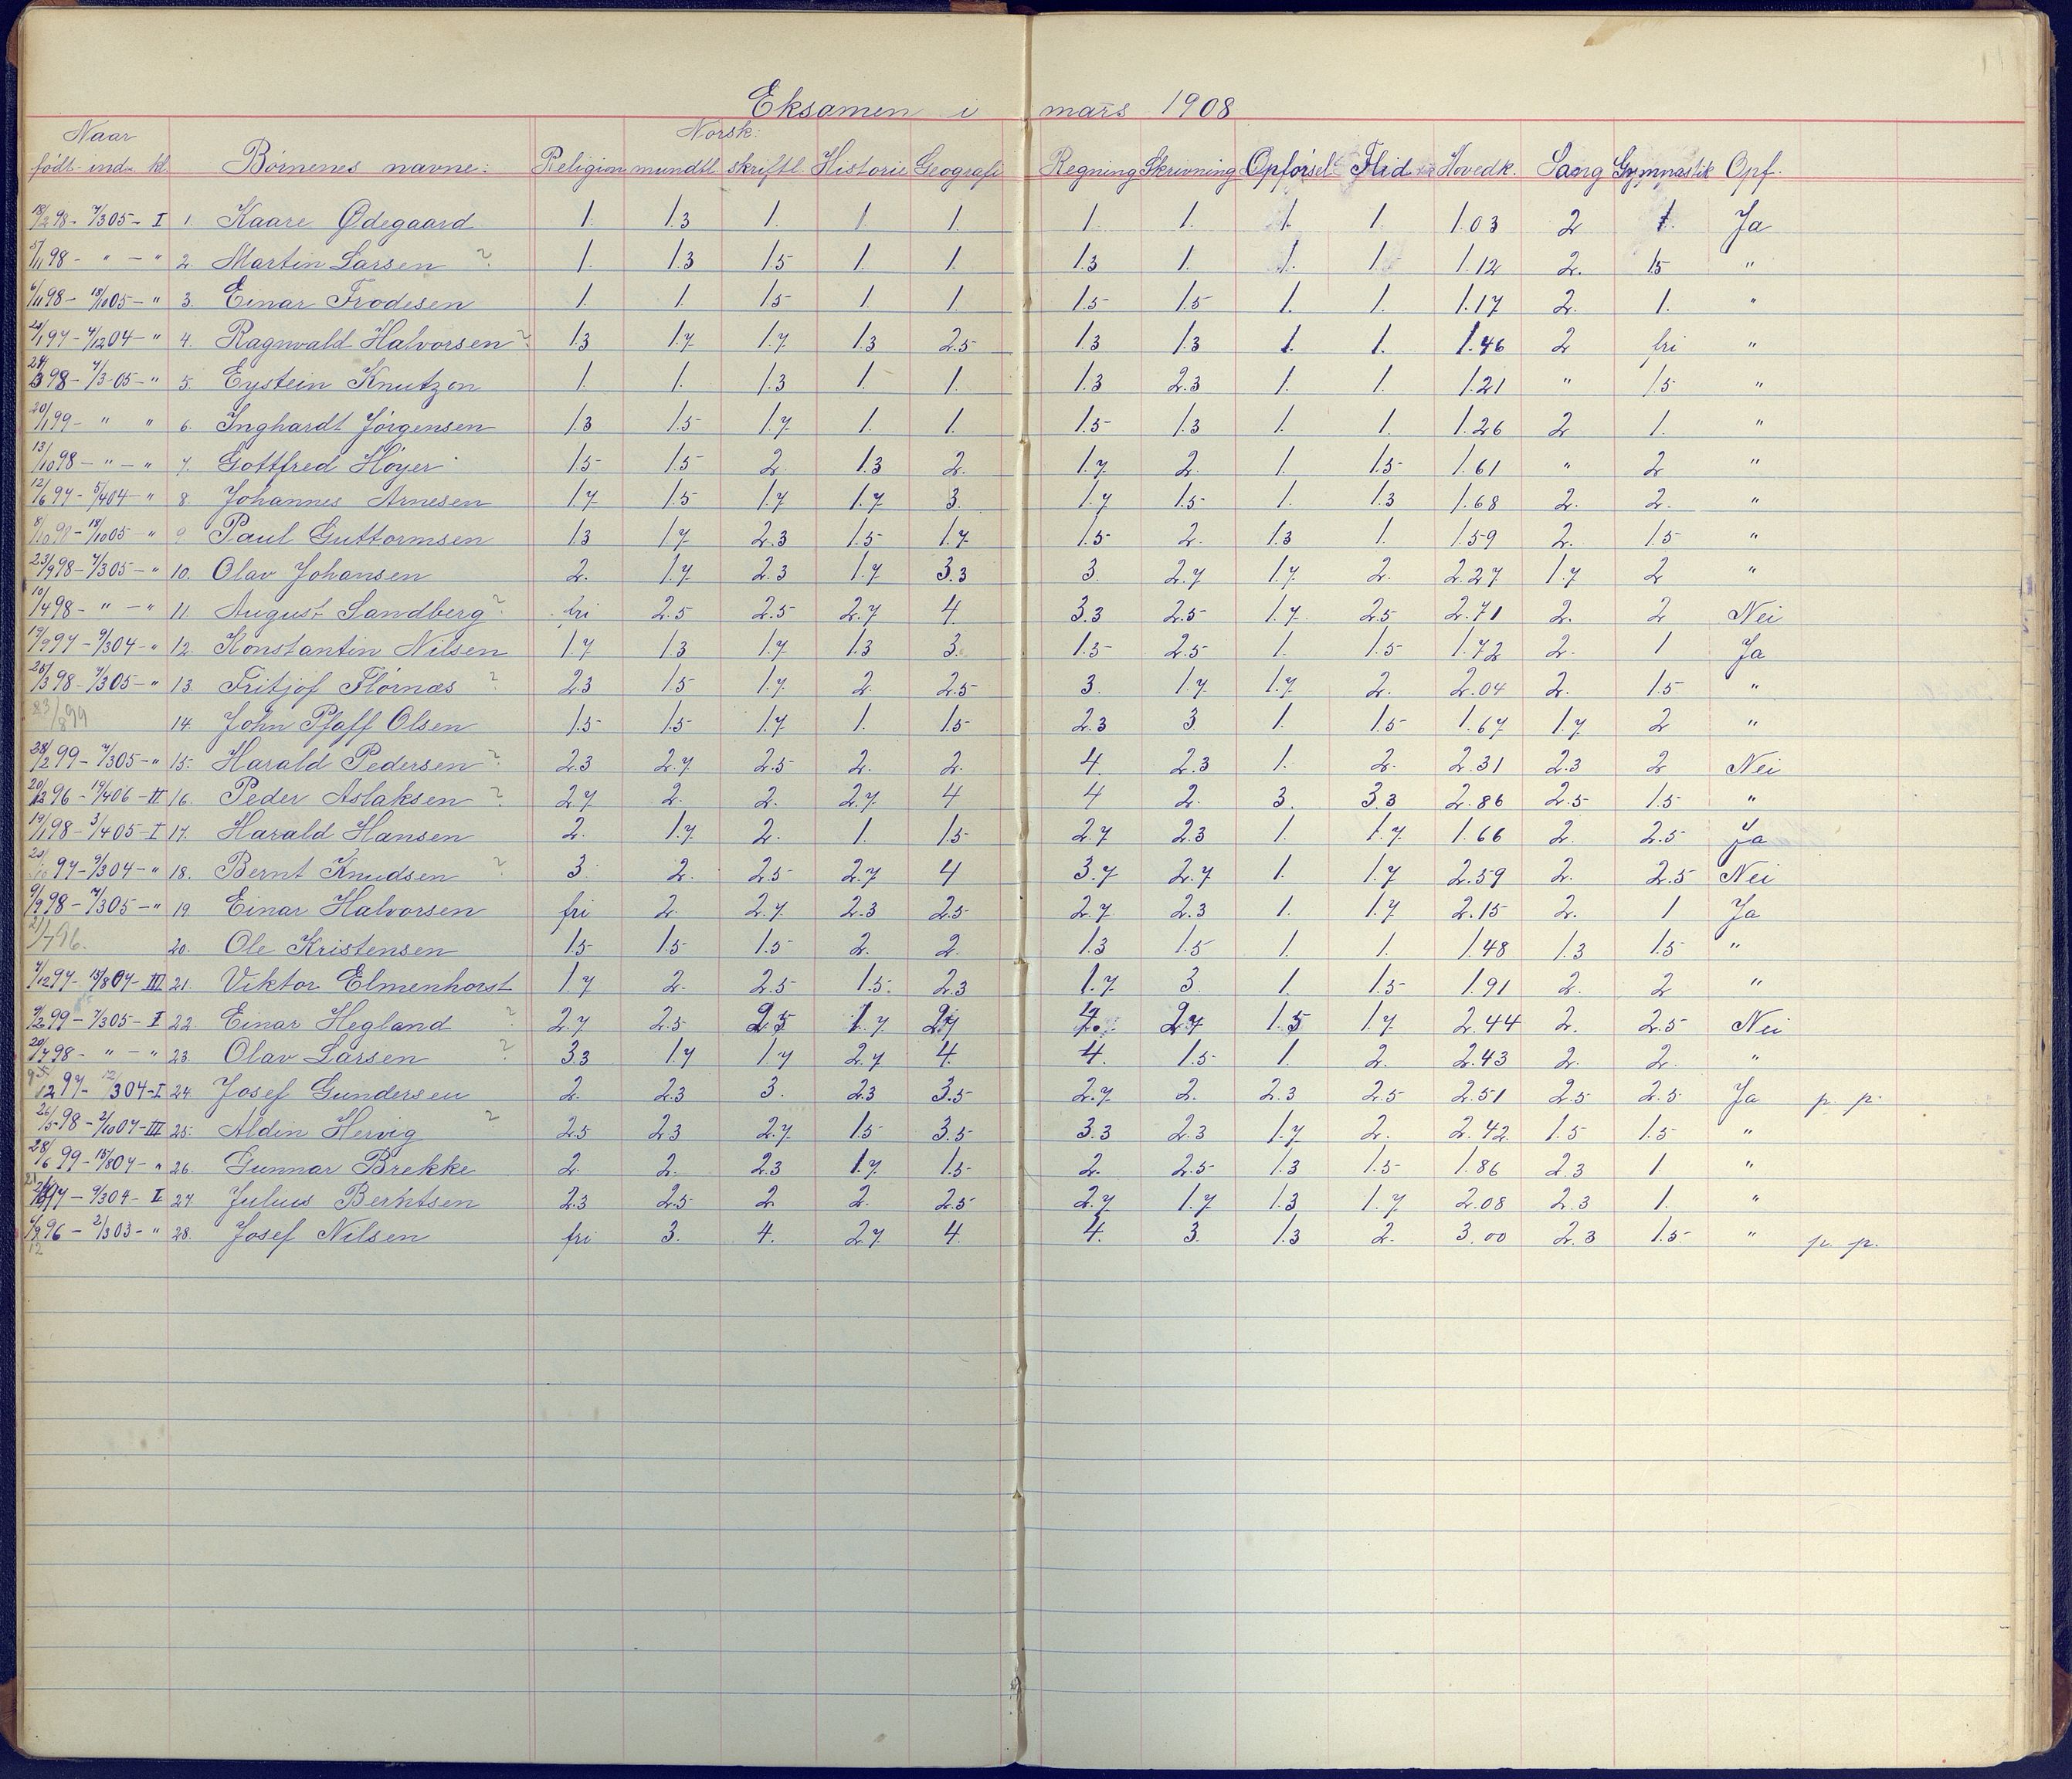 Eksamen i mars 1908
Naar Norsk:
født- ind- kl. Børnenes navne: Religion mundtl. skriftl. Historie Geografi Regning Skrivning Opførsel Flid Hovedk. Sang Gymnastik Opf.
18/2 98 - 7/3 05 - I 1. Kaare Ødegaard 1. 1.3 1. 1 1. 1 1. 1. 1. 1.03 2 1. Ja
98 - " - " 2. Martin Larsen ? 1. 1.3 1.5 1. 1. 1.3 1. 1. 1. 1.12 2. 1.5 "
6/11 98 - 18/10 05 - " 3. Einar Frodesen 1. 1. 1.5 1. 1. 1.5 1.5 1. 1. 1.17 2. 1. "
97 - 4/12 04 - " 4. Ragnvald Halvorsen ? 1.3 1.7 1.7 1.3 2.5 1.3 1.3 1. 1. 1.46 2 fri "
24/3 98 - 7/3 05 - " 5. Eystein Knutzon 1. 1. 1.3 1. 1. 1.3 2.3 1. 1. 1.21 " 1.5 "
20/1 99 - " " 6. Inghardt Jørgensen 1.3 1.5 1.7 1. 1. 1.5 1.3 1. 1. 1.26 2 1. "
13/10 98 - " - " 7. Gottfred Høyer 1.5 1.5 2. 1.3 2. 1.7 2. 1. 1.5 1.61 " 2 "
12/6 97 - 5/4 04 - " 8. Johannes Arnesen 1.7 1.5 1.7 1.7 3. 1.7 1.5 1. 1.3 1.68 2. 2. "
8/10 98 - 18/10 05 - " 9. Paul Guttormsen 1.3 1.7 2.3 1.5 1.7 1.5 2. 1.3 1 1.59 2. 1.5 "
23/9 98 - 7/3 05 - " 10. Olav Johansen 2. 1.7 2.3 1.7 3.3 3. 2.7 1.7 2. 2.27 1.7 2 "
10/4 98 - " - " 11. August Sandberg ? fri 2.5 2.5 2.7 4 3.3 2.5 1.7 2.5 2.71 2. 2 Nei
19/9 97 - 9/3 04 - " 12. Konstantin Nilsen 1.7 1.3 1.7 1.3 3. 1.5 2.5 1. 1.5 1.72 2. 1 Ja
25/3 98 - 7/3 05 - " 13. Fritjof Flørnæs ? 2.3 1.5 1.7 2. 2.5 3. 1.7 1.7 2. 2.04 2. 1.5 "
23/8 99 14. John Pfaff Olsen 1.5 1.5 1.7 1. 1.5 2.3 3 1. 1.5 1.67 1.7 2 "
28/2 99 - 7/3 05 - " 15. Harald Pedersen ? 2.3 2.7 2.5 2. 2. 4. 2.3 1. 2. 2.31 2.3 2 Nei
20/12 96 - 19/4 06 - II 16. Peder Aslaksen ? 2.7 2. 2. 2.7 4 4 2. 3. 3.3 2.86 2.5 1.5 "
19/1 98 - 3/4 05 - I 17. Harald Hansen 2. 1.7 2. 1. 1.5 2.7 2.3 1. 1.7 1.66 2. 2.5 Ja
97 - 9/3 04 - " 18. Bernt Knudsen ? 3 2. 2.5 2.7 4 3.7 2.7 1. 1.7 2.59 2. 2.5 Nei
9/9 98 - 7/3 05 - " 19 Einar Halvorsen fri 2 2.7 2.3 2.5 2.7 2.3 1. 1.7 2.15 2. 1 Ja
21/7 96. 20. Ole Kristensen 1.5 1.5 1.5 2. 2. 1.3 1.5 1. 1. 1.48 1.3 1.5 "
7/12 97 - 15/8 07 - III 21. Viktor Elmenhorst 1.7 2. 2.5 1.5. 2.3 1.7 3. 1. 1.5 1.91 2. 2 "
9/2 99 - 7/3 05 - I 22. Einar Hegland ? 2.7 2.5 2.5 1.7 2.7 2.7 1.5 1.7 2.44 2. 2.5 Nei
20/7 98 - " - " 23. Olav Larsen ? 3.3 1.7 1.7 2.7 4. 4. 1.5 1. 2. 2.43 2. 2. "
12 97 - 12/3 04 - I 24. Josef Gundersen 2. 2.3 3. 2.3 3.5 2.7 2. 2.3 2.5 2.51 2.5 2.5 Ja p. p.
26/5 98 - 2/10 07 - III 25. Aldin Hervig ? 2.5 2.3 2.7 1.5 3.5 3.3 2.3 1.7 2. 2.42 1.5 1.5 "
28/6 99 - 15/8 07 - " 26. Gunnar Brekke 2. 2. 2.3 1.7 1.5 2. 2.5 1.3 1.5 1.86 2.3 1 "
97 - 9/3 04 - I 27. Julius Berntsen 2.3 2.5 2. 2. 2.5 2.7 1.7 1.3 1.7 2.08 2.3 1. "
96 - 2/3 03 - " 28. Josef Nilsen fri 3. 4. 2.7 4 4. 3. 1.3 2. 3.00 2.3 1.5 " p. p.
12